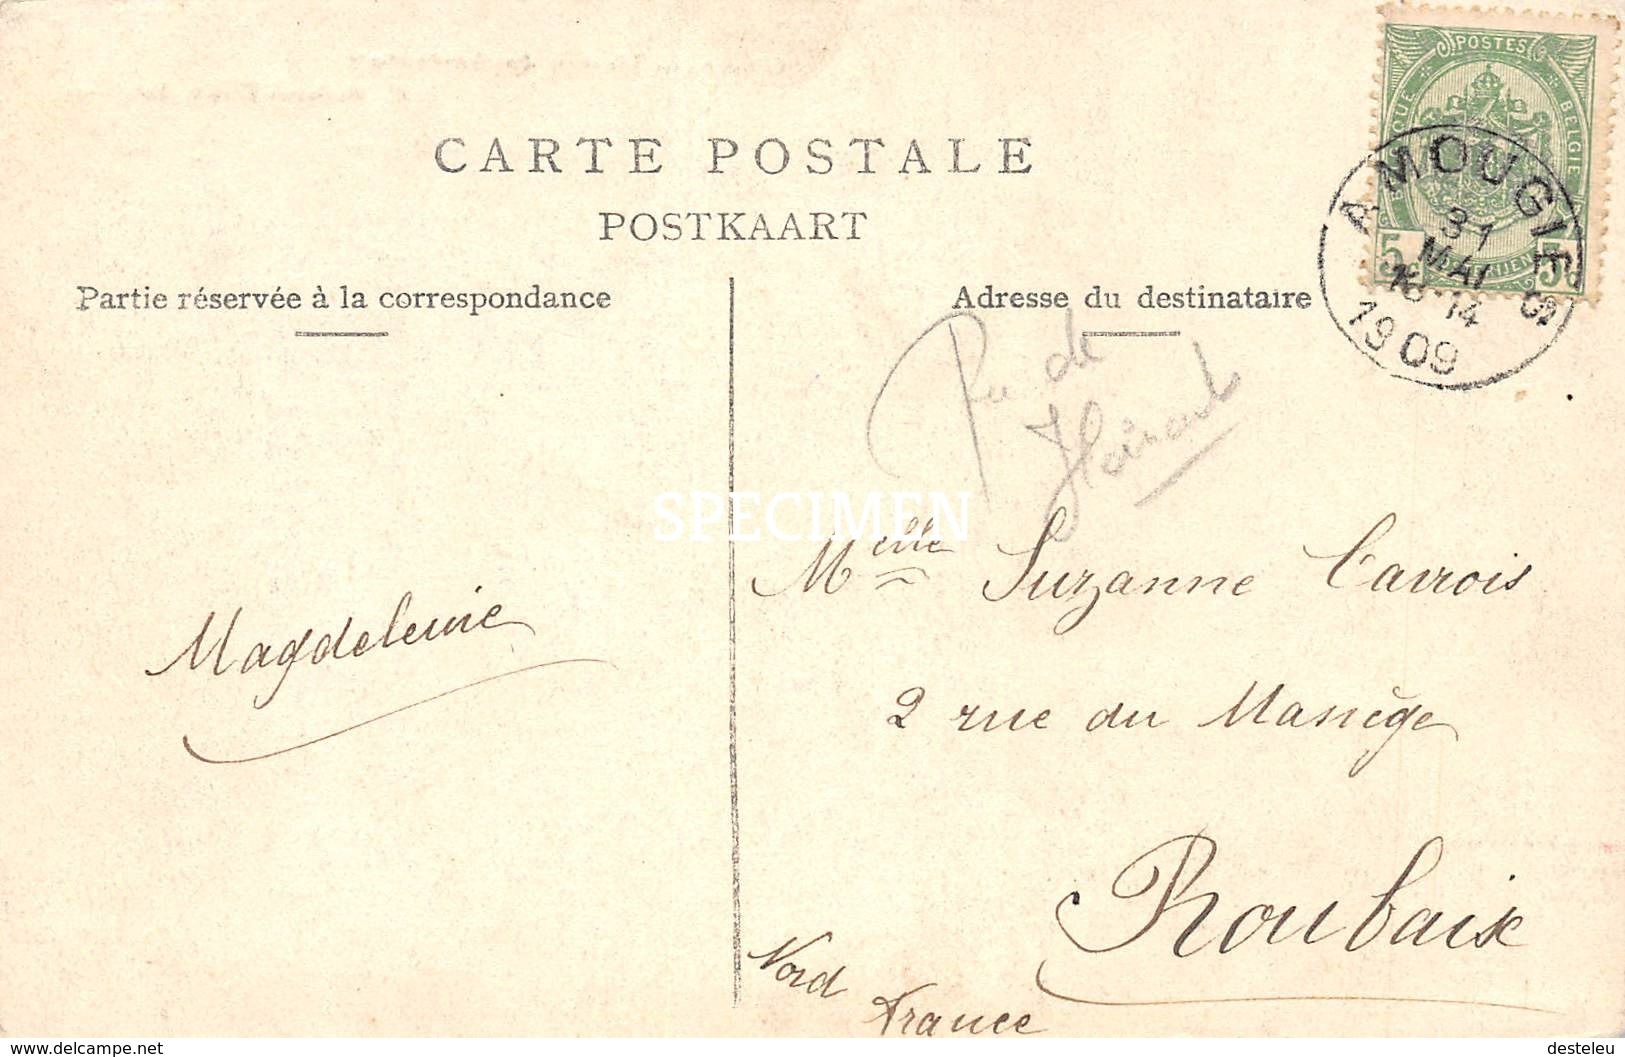 CARTE POSTALE
POSTKAART
Partie réservée à la correspondance
Adresse du destinataire
POSTES
BELGIQUE BELGIE
5 5
AMOUGIES
31
MAI
14
1909
de
SPECIMEN
Melle Suzanne Carrois
2 rue du Manège
Roubaix
Nord
France
Magdeleine
Delcampe.net
desteleu